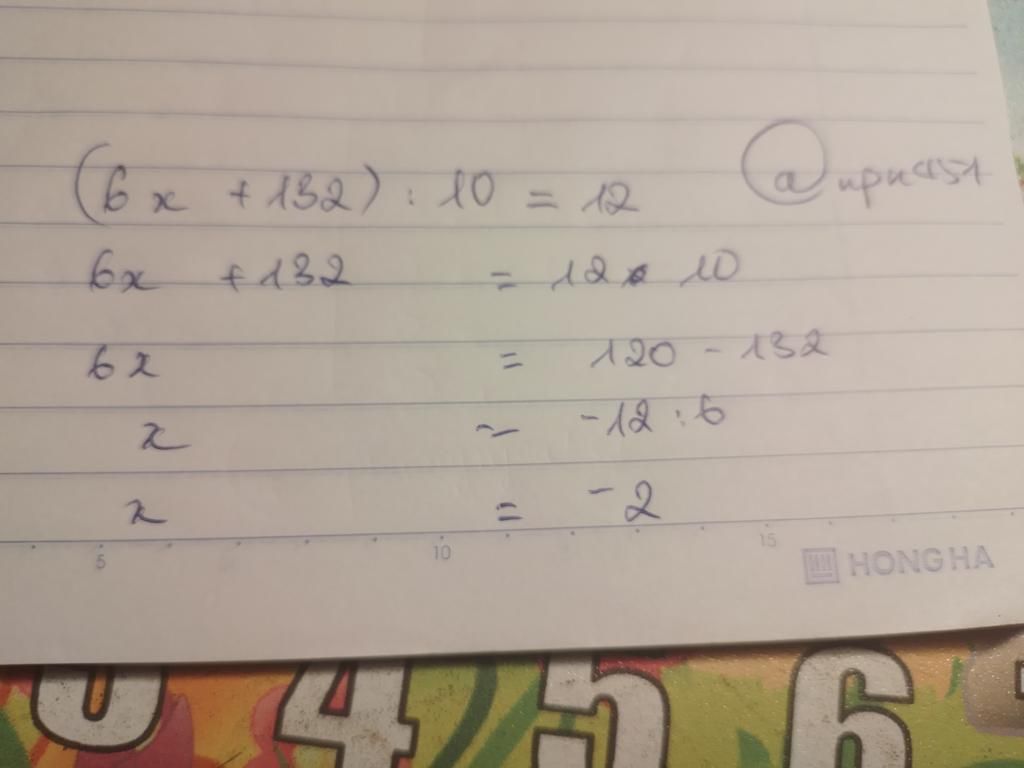 (6x + 132) : 10 = 12
6x + 132 = 12 . 10
6x = 120 - 132
x = -12 : 6
x = -2
5 10 15
HONG HA
3 4 5 6